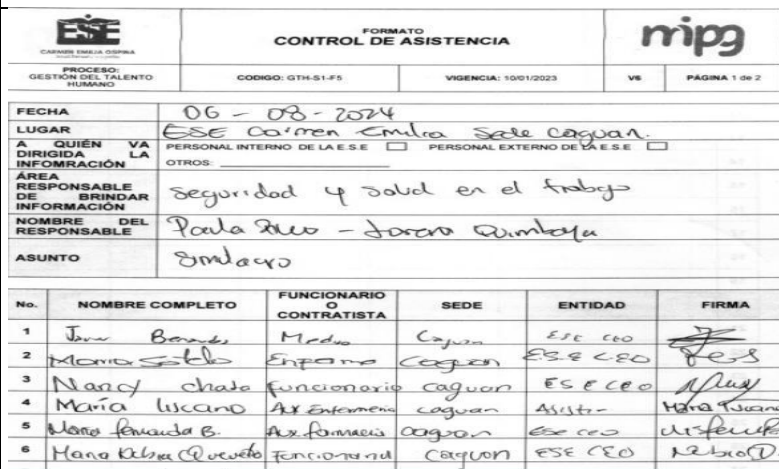 ESE
CARMEN EMILIA OSPINA
FORMATO
CONTROL DE ASISTENCIA
mipg
PROCESO:
GESTIÓN DEL TALENTO
HUMANO
CODIGO: GTH-S1-F5
VIGENCIA: 10/01/2023
V6
PÁGINA 1 de 2
FECHA 06 - 08 - 2024
LUGAR ESE Carmen Emilia Sede Caguan.
A QUIÉN VA
DIRIGIDA LA
INFOMRACIÓN
PERSONAL INTERNO DE LA E.S.E
PERSONAL EXTERNO DE LA E.S.E
OTROS:
ÁREA
RESPONSABLE
DE BRINDAR
INFORMACIÓN
Seguridad y Salud en el trabajo
NOMBRE DEL
RESPONSABLE
Paula - Lorena Quimbaya
ASUNTO Simulacro
No. NOMBRE COMPLETO FUNCIONARIO O CONTRATISTA SEDE ENTIDAD FIRMA
1 Caguan ESE CEO
2 Caguan E.S.E CEO
3 Nancy funcionario caguan ESE CEO
4 María liscano Aux Enfermeria caguan Maria Liscano
5 Maria fernanda B. Aux farmacia caguan ese ceo
6 Quevedo Funcionaria Caguan ESE CEO